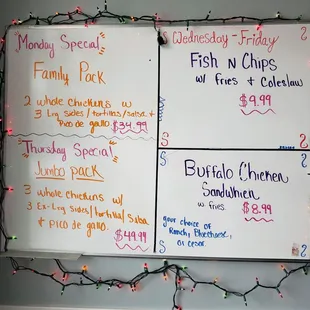 Monday Special
Family Pack
2 whole chickens w/
3 Lrg sides/tortillas/salsa &
Pico de gallo. $34.99
Thursday Special
Jumbo pack
3 whole chickens w/
3 Ex-Lrg Sides/tortilla/Salsa
& Pico de gallo.
$49.99
Wednesday-Friday
Fish N Chips
w/ fries & Coleslaw
$9.99
Buffalo Chicken
Sandwhich
w/ fries. $8.99
your choice of
Ranch, Bluecheese,
or cesar.